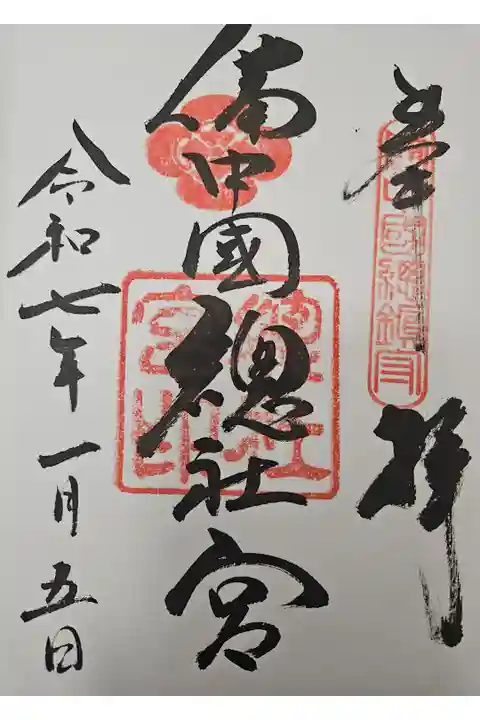 奉拝
備中國総鎮守
備中國總社宮
總社宮印
令和七年一月五日